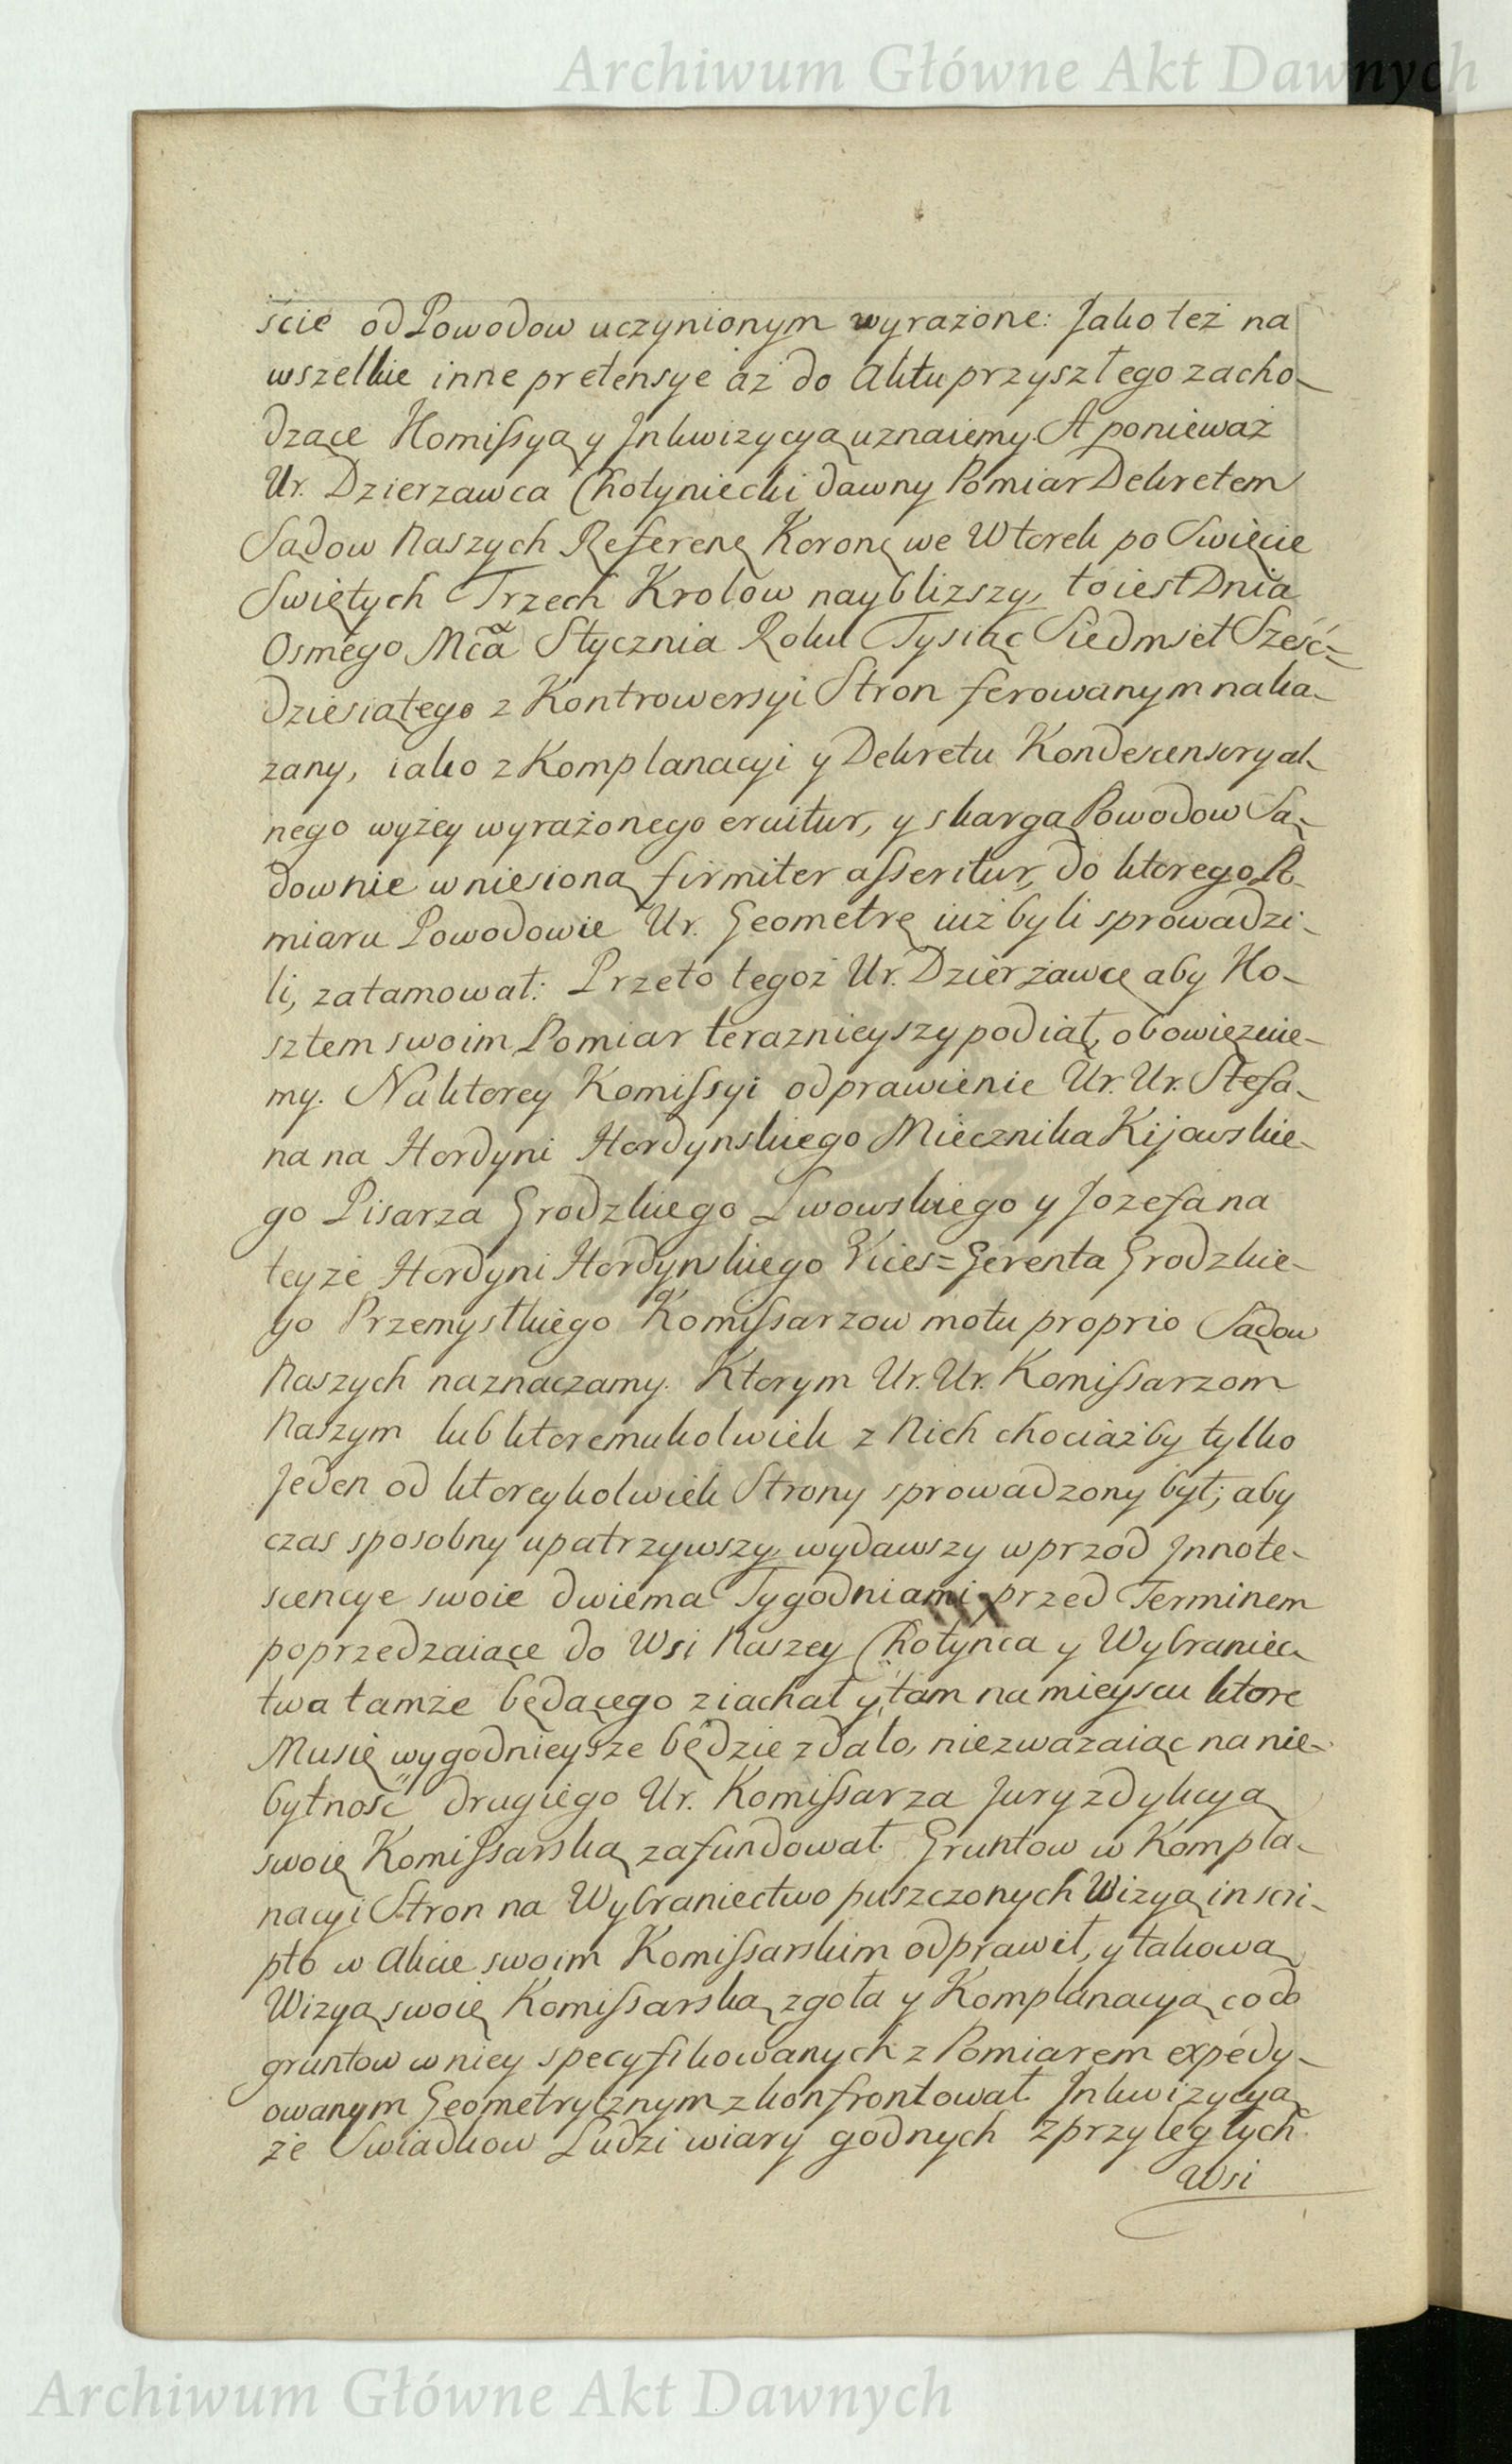 Archiwum Główne Akt Dawnych
ście od Powodow uczynionym wyrażone: Jako też na
wszelkie inne pretensye aż do Aktu przyszłego zacho-
dzące Komissyą y Inkwizycyą uznaiemy. A ponieważ
Ur. Dzierzawca Chotyniecki dawny Pomiar Dekretem
Sądow Naszych Referen Koron we Wtorek po Swięcie
Swiętych Trzech Krolow nayblizszy, to iest Dnia
Osmego Mca Stycznia Roku Tysiąc Siedmset Sześć=
dziesiątego z Kontrowersyi Stron ferowanym naka-
zany, iako z Komplanacyi y Dekretu Kondescensoryal-
nego wyżey wyrażonego eruitur, y skargą Powodow Są-
downie wniesioną firmiter asseritur, do ktorego Po-
miaru Powodowie Ur. Geometrę iuż byli sprowadzi-
li, zatamował: Przeto tegoż Ur. Dzierżawcę aby Ko-
sztem swoim Pomiar teraznieyszy podiął, obowięzuie-
my. Na ktorey Komissyi odprawienie Ur. Ur. Stefa-
na na Hordyni Hordynskiego Miecznika Kijowskie-
go Pisarza Grodzkiego Lwowskiego y Jozefa na
teyże Hordyni Hordynskiego Vices=Gerenta Grodzkie-
go Przemyslkiego Komissarzow motu proprio Sądow
Naszych naznaczamy. Ktorym Ur. Ur. Komissarzom
Naszym lub ktoremukolwiek z Nich chociażby tylko
Jeden od ktoreykolwiek Strony sprowadzony był; aby
czas sposobny upatrzywszy, wydawszy wprzod Innote-
scencye swoie dwiema Tygodniami przed Terminem
poprzedzaiące do Wsi Naszey Chotynca y Wybraniec
twa tamże będącego ziachał y tam na mieyscu ktore
Musię wygodnieysze będzie zdało, niezważaiąc na nie-
bytność drugiego Ur. Komissarza Juryzdykcyą
swoię Komissarską zafundował. Gruntow w Kompla-
nacyi Stron na Wybraniectwo puszczonych Wizyą in scri-
pto w Akcie swoim Komissarskim odprawił, y takową
Wizyą swoię Komissarską zgoła y Komplanacyą co do
gruntow w niey specyfikowanych z Pomiarem expedy-
owanym Geometrycznym zkonfrontował. Inkwizycyą
że Swiadkow Ludzi wiary godnych z przyległych
Wsi
Archiwum Główne Akt Dawnych